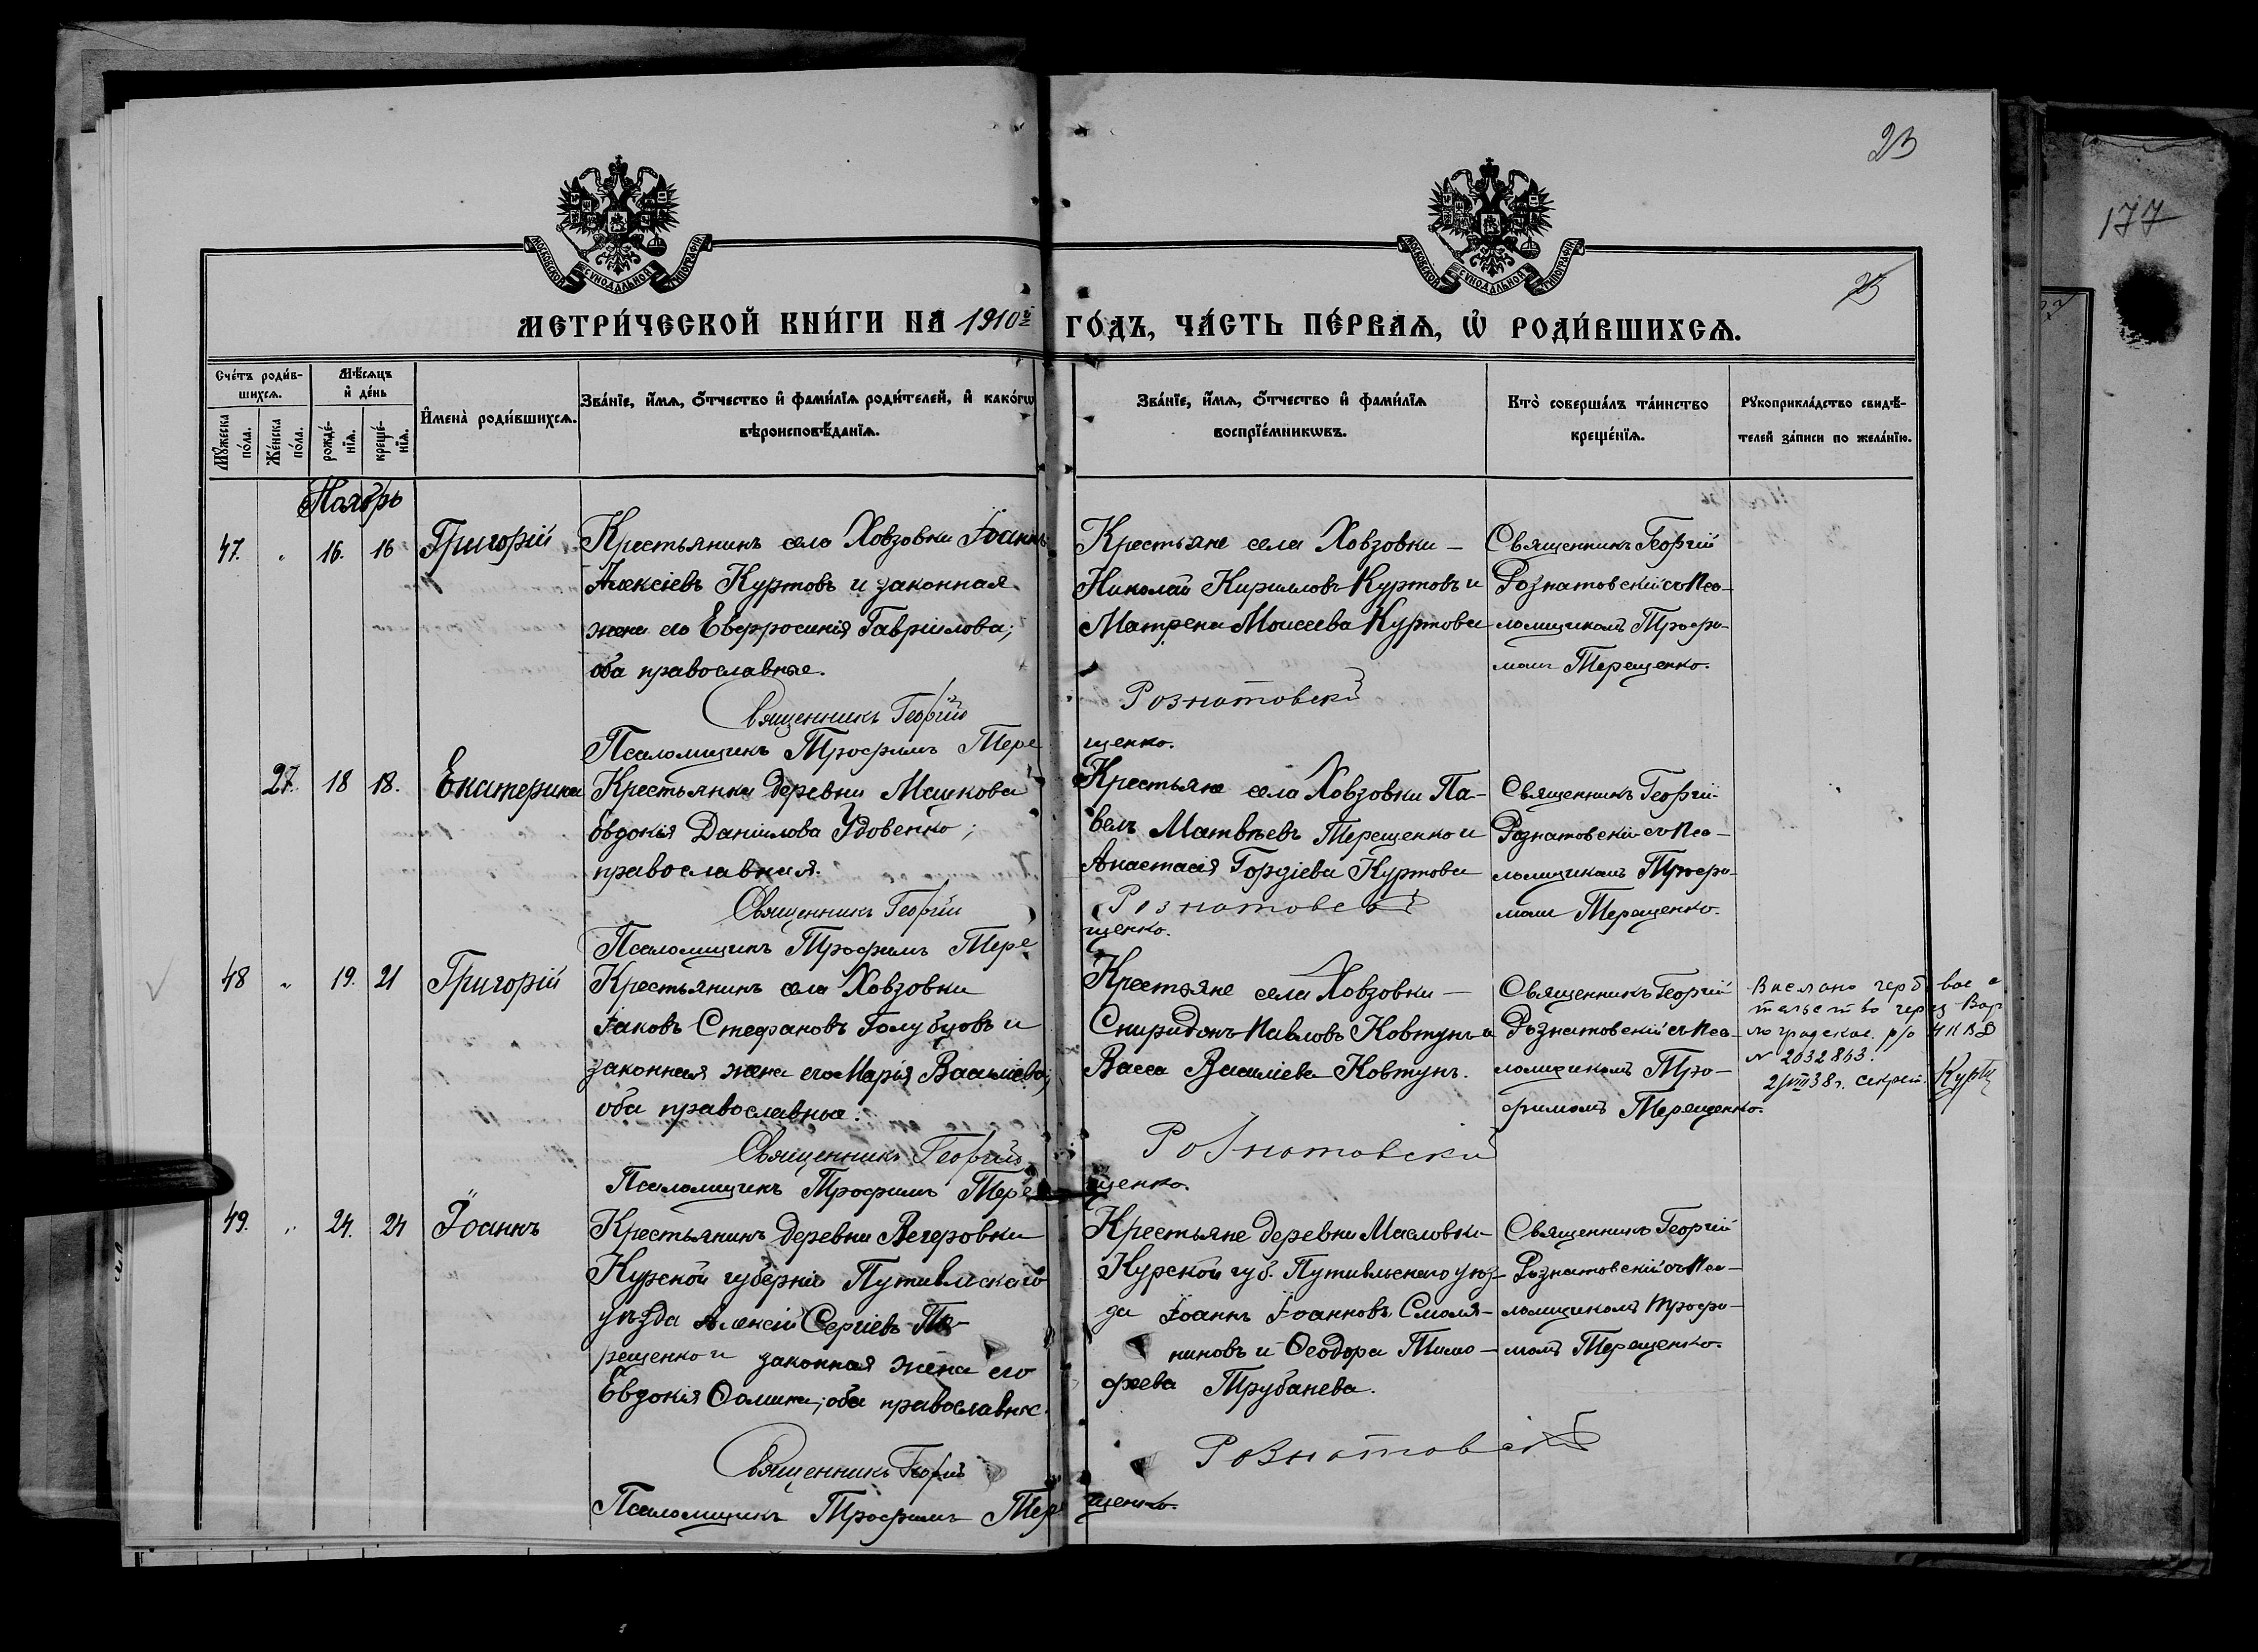 23
177
23
МОСКОВСКОЙ СѴНОДАЛЬНОЙ ТИПОГРАФІИ
МОСКОВСКОЙ СѴНОДАЛЬНОЙ ТИПОГРАФІИ
МЕТРИ́ЧЕСКОЙ КНИ́ГИ НА 1910й ГО́ДЪ, ЧА́СТЬ ПЕ́РВАѦ, Ѡ҆ РОДИ́ВШИХСѦ.
Сче́тъ роди́в-
шихсѧ.
Мѣ́сѧцъ
и҆ де́нь
Мꙋ́жеска
по́ла.
Же́нска
по́ла.
рожде́-
нїѧ.
креще́-
нїѧ.
И҆мена̀ роди́вшихсѧ.
Зва́нїе, и҆́мѧ, ѻ҆́тчество и҆ фами́лїѧ роди́телей, и҆ како́гѡ
вѣроисповѣ́данїѧ.
Зва́нїе, и҆́мѧ, ѻ҆́тчество и҆ фами́лїѧ
воспрїе́мникѡвъ.
Кто̀ соверша́лъ та́инство
креще́нїѧ.
Рꙋкоприкла́дство свидѣ́-
телей за́писи по жела́нїю.
Ноябрь
47. " 16. 16 Григорій
Крестьянинъ села Ховзовки Іоаннъ
Алексіевъ Куртовъ и законная
жена его Евфросинія Гавріилова;
оба православные.
Священникъ Георгій
Псаломщикъ Трофимъ Тере
Крестьяне села Ховзовки —
Николай Кирилловъ Куртовъ и
Матрена Моисеева Куртова
Рознатовскій
щенко.
Священникъ Георгій
Рознатовскій съ Пса-
ломщикомъ Трофи-
момъ Терещенко.
27. 18 18. Екатерина
Крестьянка деревни Машкова
Евдокія Даніилова Удовенко;
православная.
Священникъ Георгій
Псаломщикъ Трофимъ Тере
Крестьяне села Ховзовки Па-
велъ Матвѣевъ Терещенко и
Анастасія Гордіева Куртова
Рознатовскій
щенко.
Священникъ Георгій
Рознатовскій съ Пса-
ломщикомъ Трофи-
момъ Терещенко.
48 " 19. 21 Григорій
Крестьянинъ села Ховзовки
Іаковъ Стефановъ Голубцовъ и
законная жена его Марія Васильева;
оба православные.
Священникъ Георгій
Псаломщикъ Трофимъ Тере
Крестьяне села Ховзовки —
Спиридонъ Павловъ Ковтунъ и
Васса Василіева Ковтунъ.
Рознатовскій
щенко.
Священникъ Георгій
Рознатовскій съ Пса-
ломщикомъ Тро-
фимомъ Терещенко.
через Вор
р/о НКВД
№ 2032843.
2/VIII 38 г. секрет.
49. " 24. 24 Іоаннъ
Крестьянинъ деревни Вегеровки
Курской губерніи Путивльскаго
уѣзда Алексій Сергіевъ Те-
рещенко и законная жена его
Евдокія Ѳомина; оба православные.
Священникъ Георгій
Псаломщикъ Трофимъ Тере
Крестьяне деревни Масловки
Курской губ. Путивльскаго уѣз-
да Іоаннъ Іоанновъ Смоля-
ниновъ и Ѳеодора Тимо-
феева Трубачева.
Рознатовскій
щенко.
Священникъ Георгій
Рознатовскій съ Пса-
ломщикомъ Трофи-
момъ Терещенко.